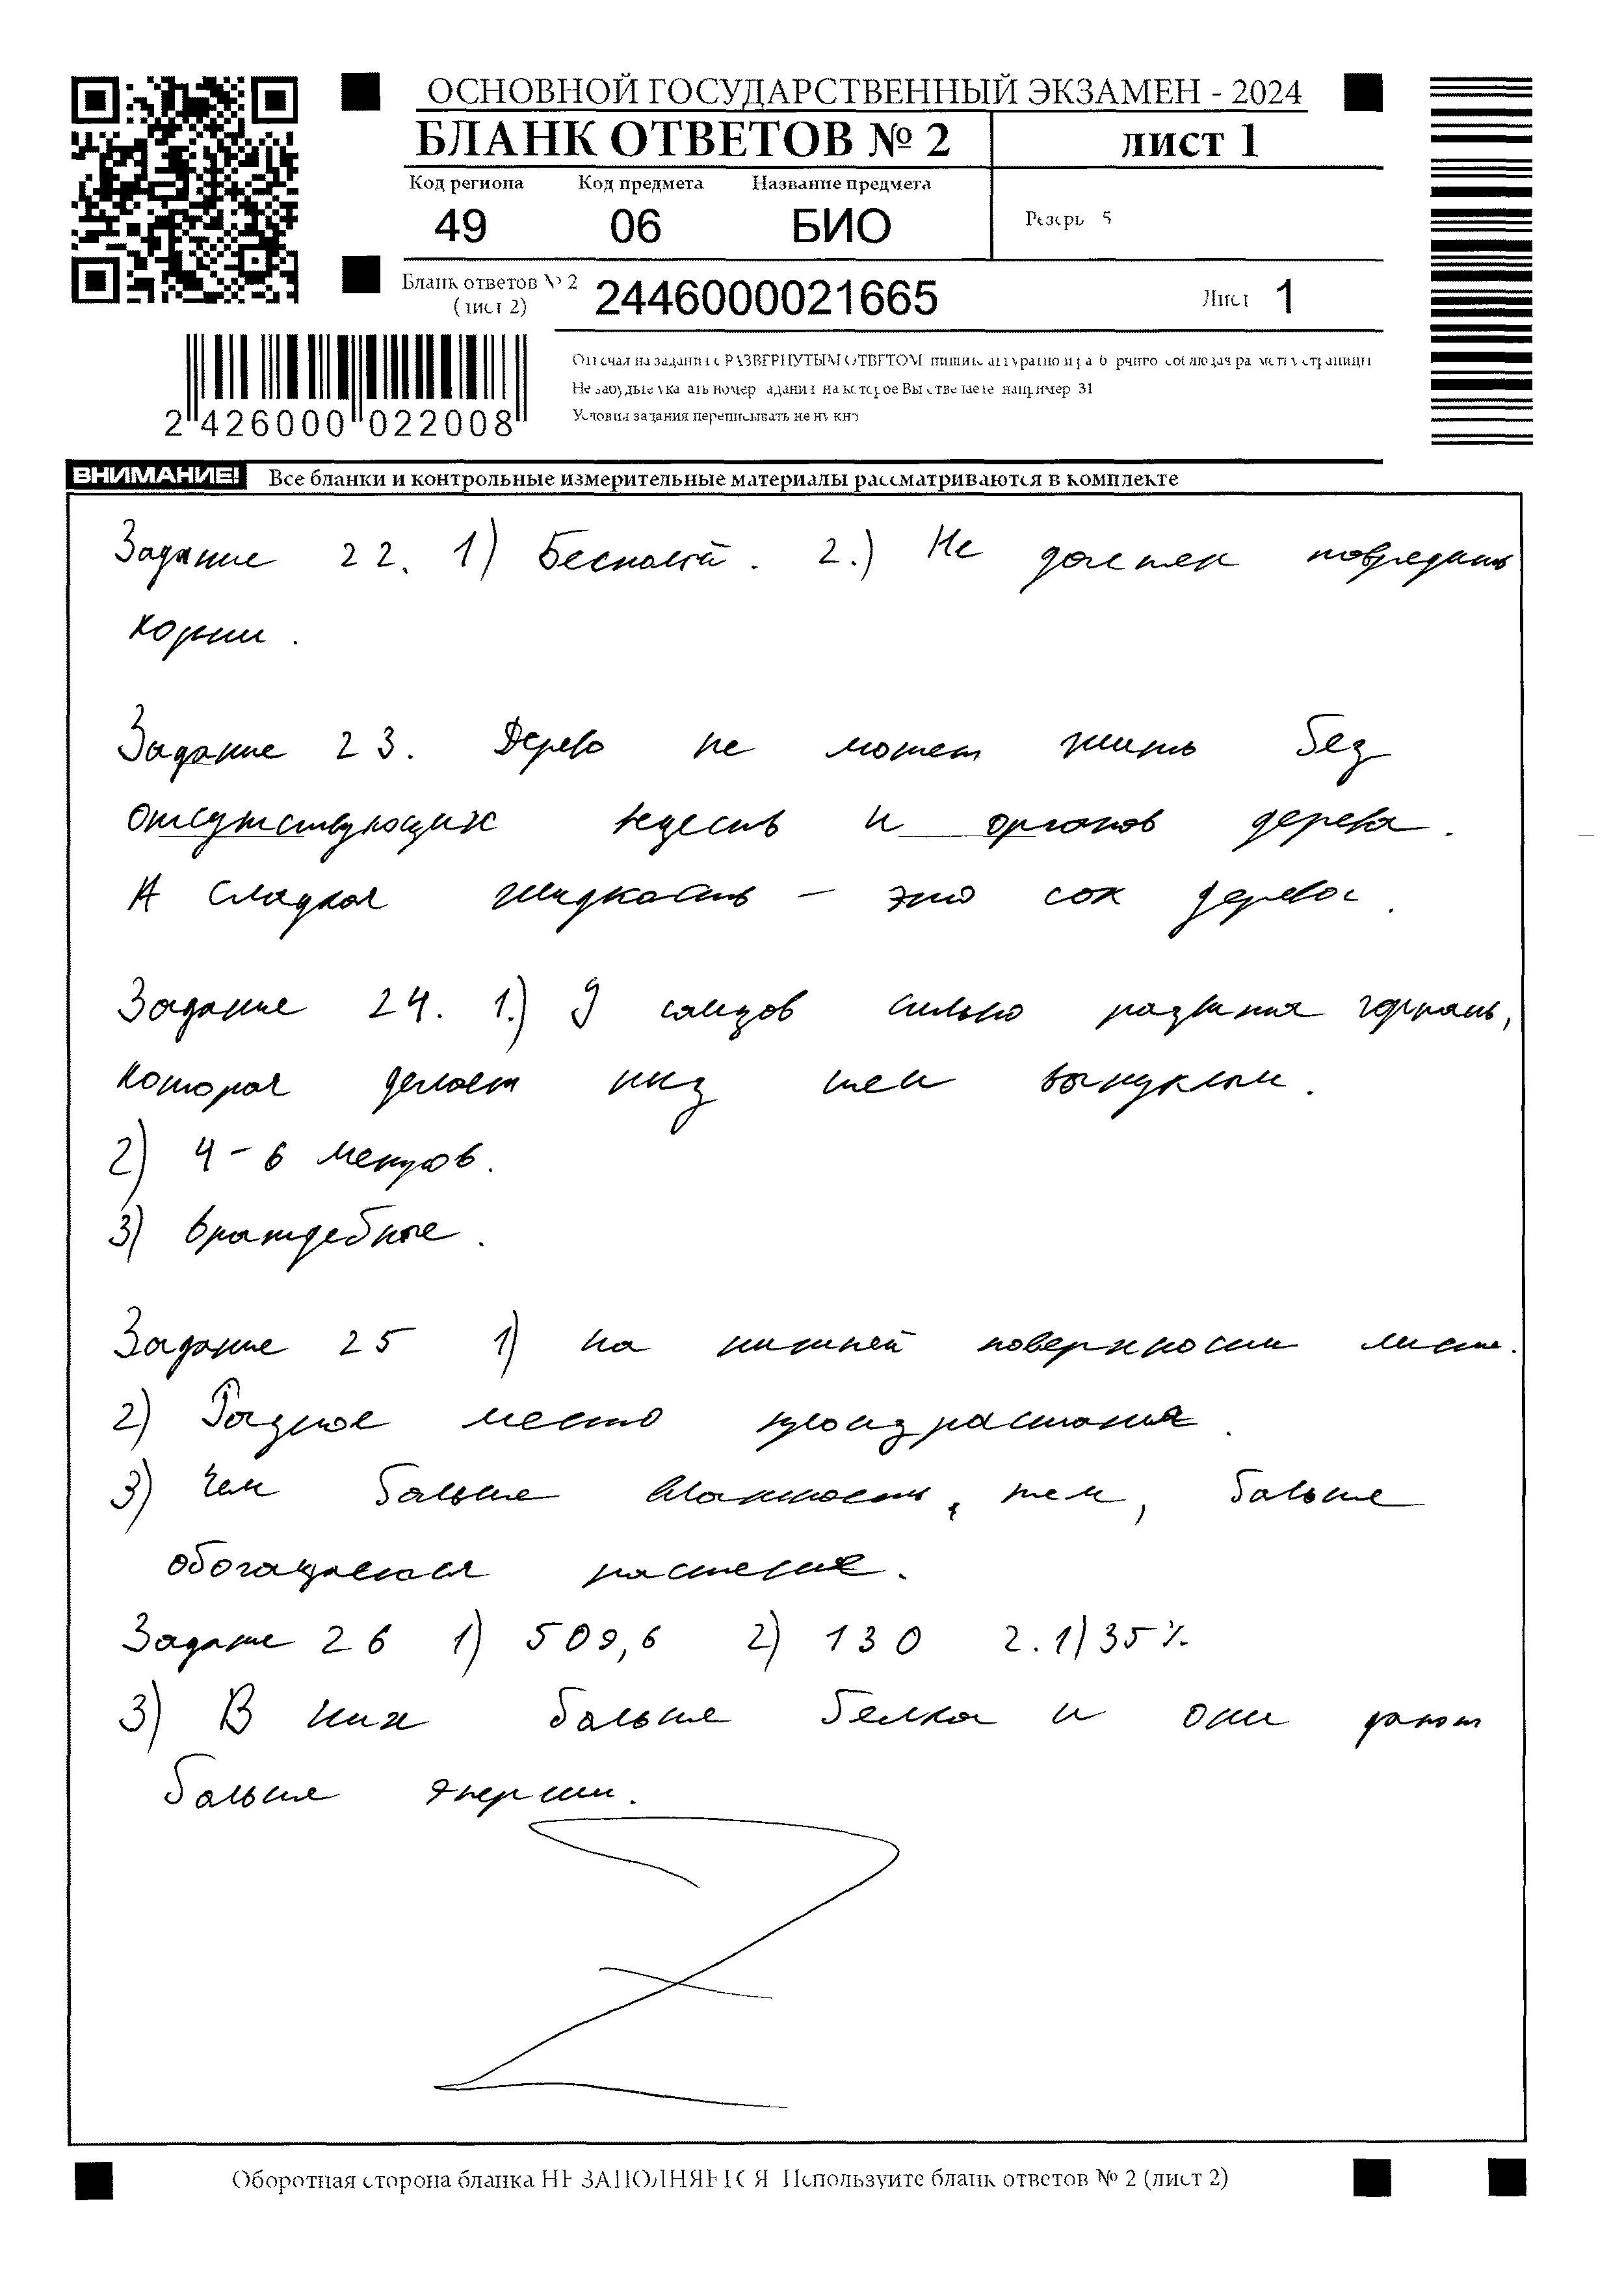 ОСНОВНОЙ ГОСУДАРСТВЕННЫЙ ЭКЗАМЕН - 2024
БЛАНК ОТВЕТОВ № 2 лист 1
Код региона Код предмета Название предмета
49 06 БИО
Резерв 5
Бланк ответов № 2
(лист 2) 2446000021665 Лист 1
2 426000 022008
Отвечая на задания с РАЗВЕРНУТЫМ ОТВЕТОМ пишите аккуратно и разборчиво соблюдая разметку страницы
Не забудьте указать номер задания на которое Вы отвечаете например 31
Условия задания переписывать не нужно
ВНИМАНИЕ! Все бланки и контрольные измерительные материалы рассматриваются в комплекте
Задание 22. 1) Бесполый. 2.) Не должен повредить
корни.
Задание 23. Дерево не может жить без
отсутствующих веществ и органов дерева.
А сладкая жидкость – это сок дерева.
Задание 24. 1.) У самцов сильно развитая гортань,
которая делает низ шеи выпуклым.
2) 4-6 месяцов.
3) враждебные.
Задание 25 1) на нижней поверхности листа.
2) Разное место произрастания.
3) Чем больше влажность, тем, больше
обогащается растение.
Задание 26 1) 509,6 2) 130 2.1) 35%
3) В них больше белка и они дают
больше энергии.
Оборотная сторона бланка НЕ ЗАПОЛНЯЕТСЯ Используйте бланк ответов № 2 (лист 2)